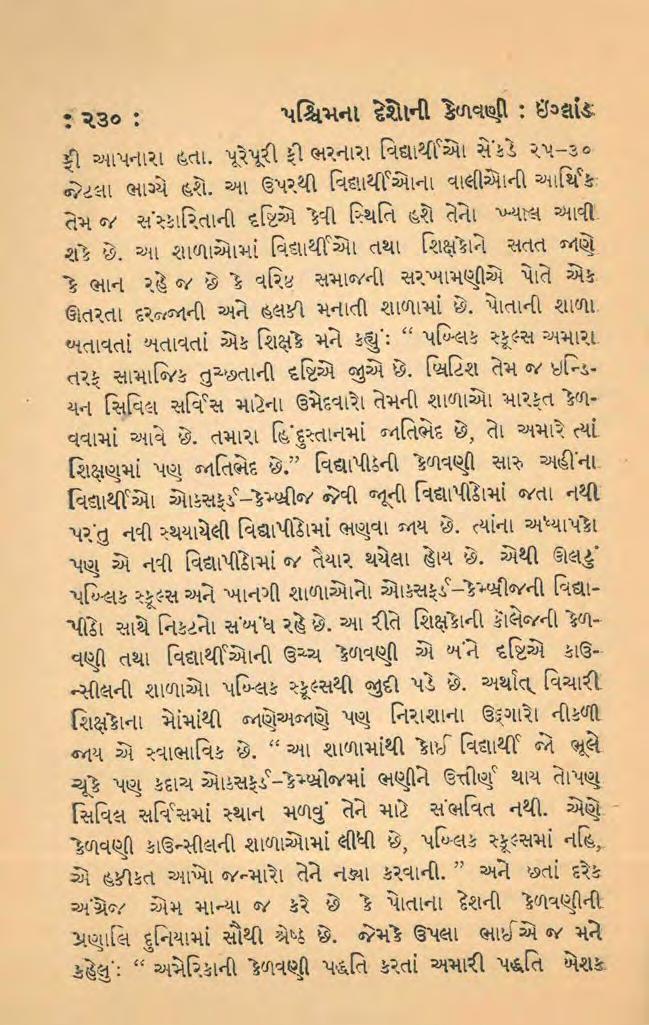 : ૨૩૦ : પશ્ચિમના દેશોની કેળવણી : ઇંગ્લાંડ
ફી આપનારા હતા. પૂરેપૂરી ફી ભરનારા વિદ્યાર્થીઓ સેંકડે ૨૫–૩૦
જેટલા ભાગ્યે હશે. આ ઉપરથી વિદ્યાર્થીઓના વાલીઓની આર્થિક
તેમ જ સંસ્કારિતાની દૃષ્ટિએ કેવી સ્થિતિ હશે તેનો ખ્યાલ આવી
શકે છે. આ શાળાઓમાં વિદ્યાર્થીઓ તથા શિક્ષકોને સતત જાણે
કે ભાન રહે જ છે કે વરિષ્ઠ સમાજની સરખામણીએ પોતે એક
ઊતરતા દરજ્જાની અને હલકી મનાતી શાળામાં છે. પોતાની શાળા
બતાવતાં બતાવતાં એક શિક્ષકે મને કહ્યું: “ પબ્લિક સ્કૂલ્સ અમારા
તરફ સામાજિક તુચ્છતાની દૃષ્ટિએ જીએ છે. બ્રિટિશ તેમ જ ઇન્ડિ-
યન સિવિલ સર્વિસ માટેના ઉમેદવારો તેમની શાળાઓ મારફત કેળ-
વવામાં આવે છે. તમારા હિંદુસ્તાનમાં જાતિભેદ છે, તો અમારે ત્યાં
શિક્ષણમાં પણ જાતિભેદ છે.” વિદ્યાપીઠની કેળવણી સારુ અહીંના
વિદ્યાર્થીઓ ઓક્સફર્ડ–કેમ્બ્રીજ જેવી જૂની વિદ્યાપીઠોમાં જતા નથી
પરંતુ નવી સ્થયાયેલી વિદ્યાપીઠોમાં ભણવા જાય છે. ત્યાંના અધ્યાપકો
પણ એ નવી વિદ્યાપીઠોમાં જ તૈયાર થયેલા હોય છે. એથી ઊલટું
પબ્લિક સ્કૂલ્સ અને ખાનગી શાળાઓનો ઓક્સફર્ડ–કેમ્બ્રીજની વિદ્યા-
પીઠો સાથે નિકટનો સંબંધ રહે છે. આ રીતે શિક્ષકોની કૉલેજની કેળ-
વણી તથા વિદ્યાર્થીઓની ઉચ્ચ કેળવણી એ બંને દૃષ્ટિએ કાઉ-
ન્સીલની શાળાઓ પબ્લિક સ્કૂલ્સથી જુદી પડે છે. અર્થાત્ વિચારી
શિક્ષકોના મોંમાંથી જાણેઅજાણે પણ નિરાશાના ઉદ્ગારો નીકળી
જાય એ સ્વાભાવિક છે. “ આ શાળામાંથી કોઈ વિદ્યાર્થી જો ભૂલે
ચૂકે પણ કદાચ ઓક્સફર્ડ–કેમ્બ્રીજમાં ભણીને ઉત્તીર્ણ થાય તોપણ
સિવિલ સર્વિસમાં સ્થાન મળવું તેને માટે સંભવિત નથી. એણે
કેળવણી કાઉન્સીલની શાળાઓમાં લીધી છે, પબ્લિક સ્કૂલ્સમાં નહિ,
એ હકીકત આખો જન્મારો તેને નડ્યા કરવાની. ” અને છતાં દરેક
અંગ્રેજ એમ માન્યા જ કરે છે કે પોતાના દેશની કેળવણીની
પ્રણાલિ દુનિયામાં સૌથી શ્રેષ્ઠ છે. જેમકે ઉપલા ભાઈએ જ મને
કહેલું: “ અમેરિકાની કેળવણી પદ્ધતિ કરતાં અમારી પદ્ધતિ બેશક